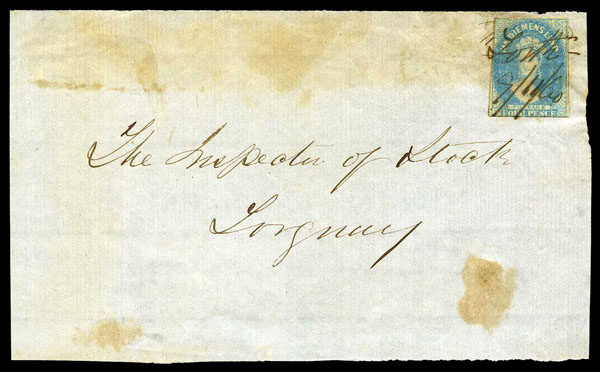 VAN DIEMENS LAND
POSTAGE
FOUR PENCE
The Inspector of Stock
Torquay